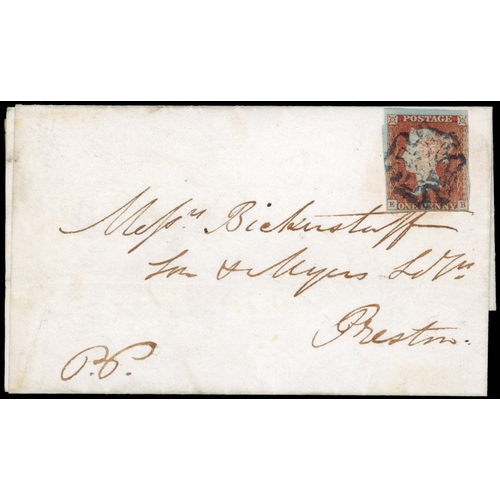 POSTAGE
ONE PENNY
E B
Messrs Bickerstaff
Son & Myers
Preston.
P.P.